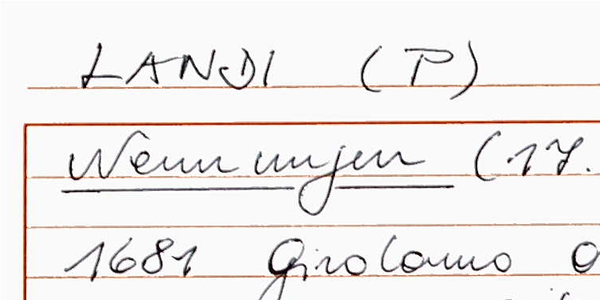 LANDI (P)
Nennungen (17.
1681 Girolamo